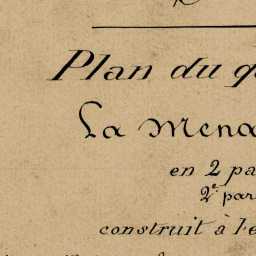 Plan du q
La Mena
en 2 pa
2e par
construit à l'e